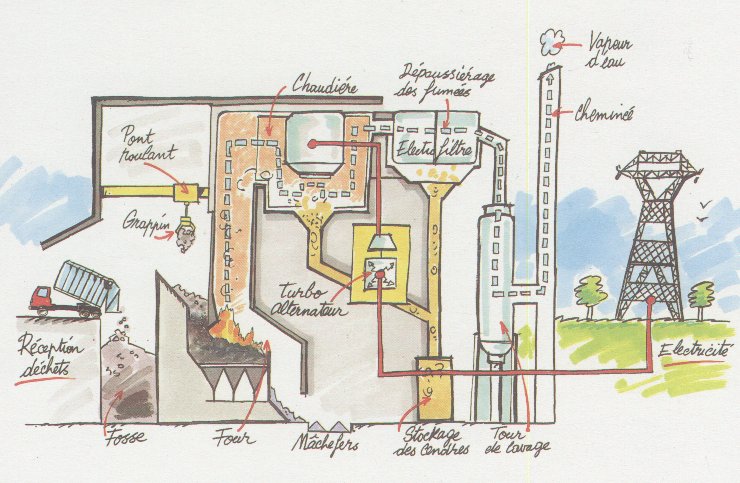 Vapeur
d'eau
Dépaussiérage
des fumées
Chaudière
Cheminé
Pont
roulant
Electrofiltre
Grappin
turbo
alternateur
Réception
déchets
Electricité
Fosse
Four
Mâchefers
Stockage
des Cendres
Tour
de lavage